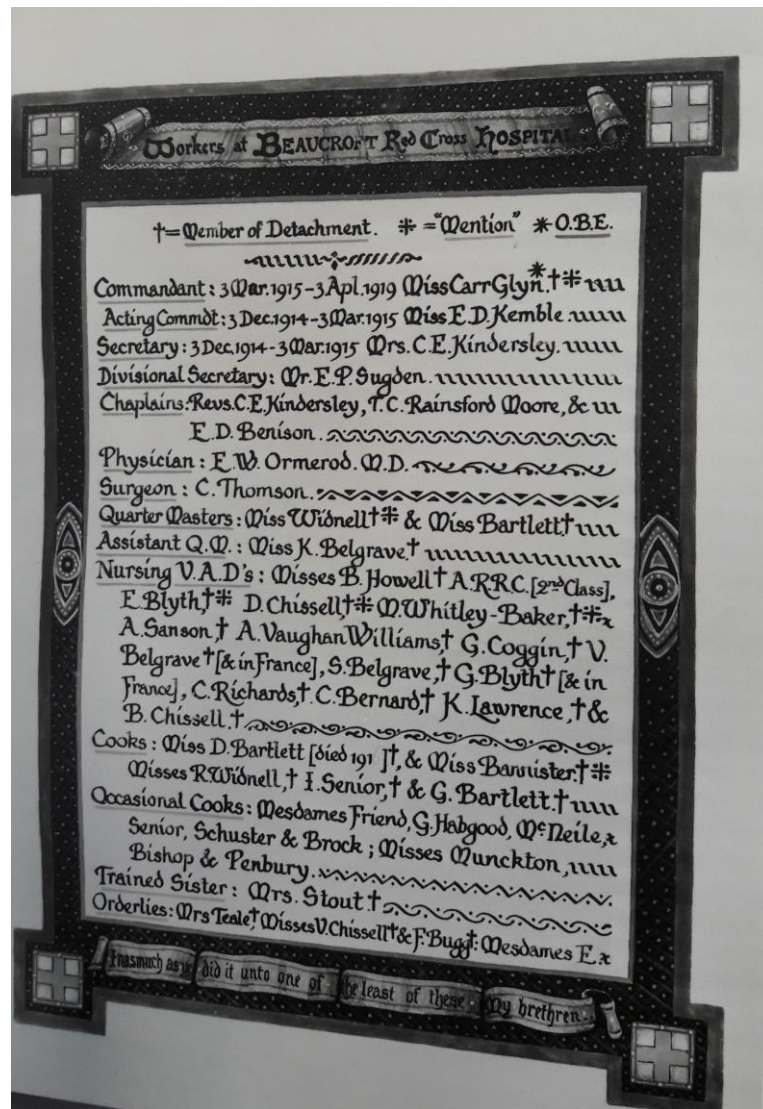 Workers at BEAUCROFT Red Cross HOSPITAL
†=Member of Detachment. ⁜ ="Mention" * O.B.E.
Commandant: 3 Mar. 1915-3 Apl. 1919 Miss Carr Glyn.*†⁜
Acting Commdt: 3 Dec. 1914-3 Mar. 1915 Miss E.D. Kemble.
Secretary: 3 Dec. 1914-3 Mar. 1915 Mrs. C.E. Kindersley.
Divisional Secretary: Mr. E.P. Sugden.
Chaplains: Revs. C.E. Kindersley, T.C. Rainsford Moore, &
E.D. Benison.
Physician: E.W. Ormerod. M.D.
Surgeon: C. Thomson.
Quarter Masters: Miss Widnell†⁜ & Miss Bartlett†
Assistant Q.M.: Miss K. Belgrave.†
Nursing V.A.D's: Misses B. Howell† A.R.R.C. [2nd Class],
E. Blyth,†⁜ D. Chissell,†⁜ M. Whitley-Baker,†⁜
A. Sanson,† A. Vaughan Williams,† G. Coggin,† V.
Belgrave† [& in France], S. Belgrave,† G. Blyth† [& in
France], C. Richards,† C. Bernard,† K. Lawrence,† &
B. Chissell.†
Cooks: Miss D. Bartlett [died 191 ]†, & Miss Bannister.†⁜
Misses R. Widnell,† I. Senior,† & G. Bartlett.†
Occasional Cooks: Mesdames Friend, G. Habgood, McNeile,
Senior, Schuster & Brock; Misses Munckton,
Bishop & Penbury.
Trained Sister: Mrs. Stout.†
Orderlies: Mrs Teale,† Misses V. Chissell† & F. Bugg†: Mesdames E.
Inasmuch as ye did it unto one of the least of these My brethren.